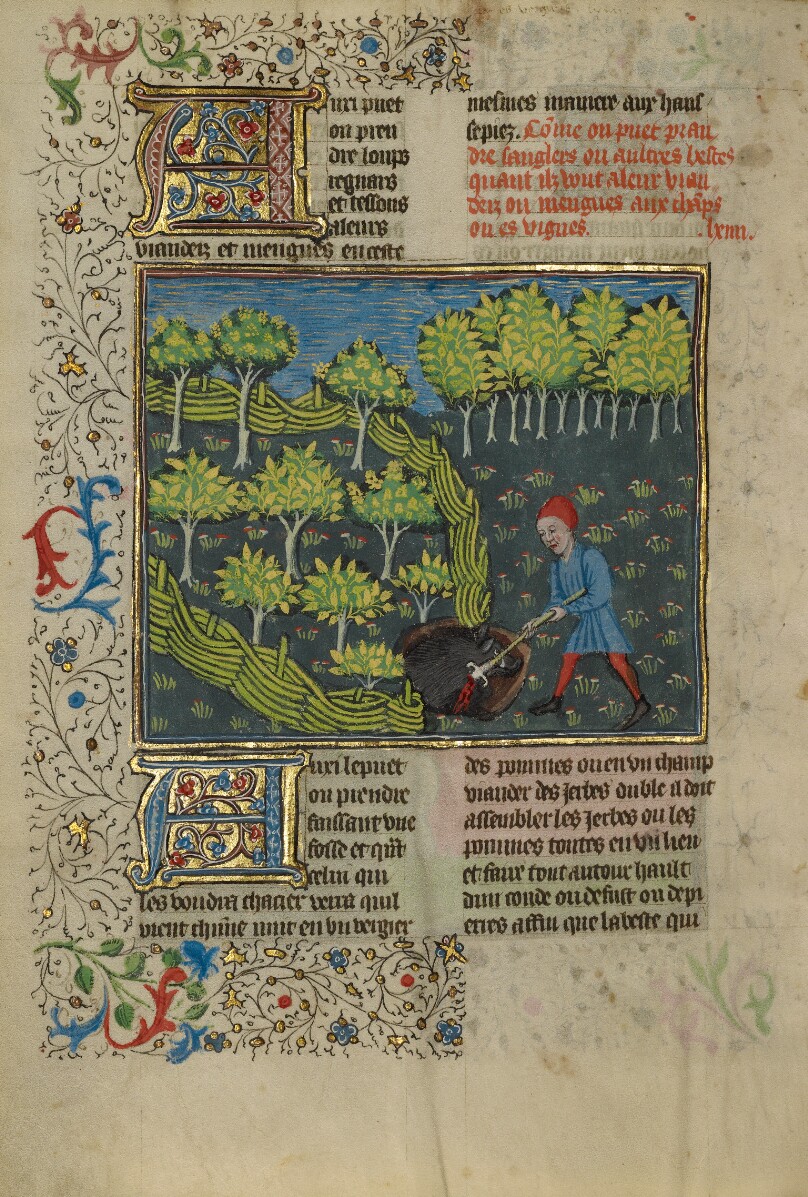 Auxi puet
on pren
dre loups
regnars
et tessons
aleurs
viandeiz et mengues en ceste
mesmes maniere aux haus
sepiez. Cōme on puet prau
dre sanglers ou aultres bestes
quant ilz vont a leur vian
deiz ou mengues aux chāps
ou es vignes. .lxiiii.
Auxi le puet
on prendre
faisant une
fosse et qūt
celui qui
les voudra chacier verra quil
vient chūne nuit en un vergier
des pommes ou en un champ
viander des jerbes ou ble il doit
assembler les jerbes ou les
pommes toutes en un lieu
et faire tout autour hault
dun conde ou de fust ou de pi
erres affin que la beste qui